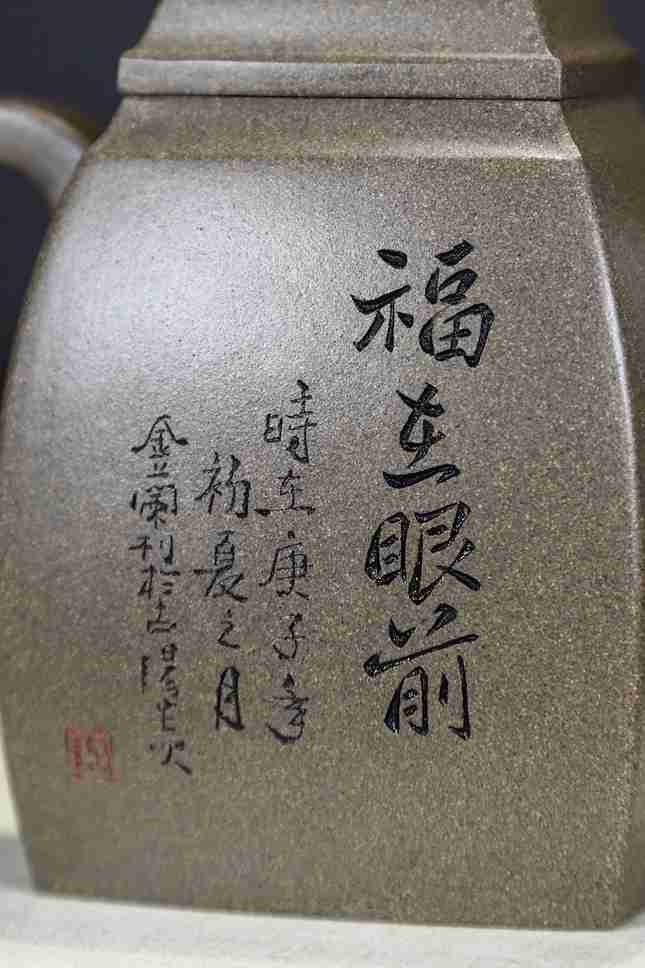 福在眼前
時在庚子年
初夏之月
金蘭刊於古陽